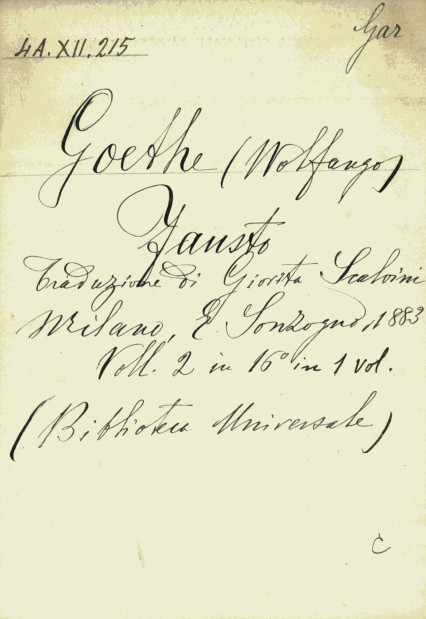 Gar
4A.XII.215
Goethe (Wolfango)
Fausto
Traduzione di Giovita Scalvini
Milano, E. Sonzogno, 1883
Voll. 2 in 16° in 1 vol.
(Biblioteca Universale)
C